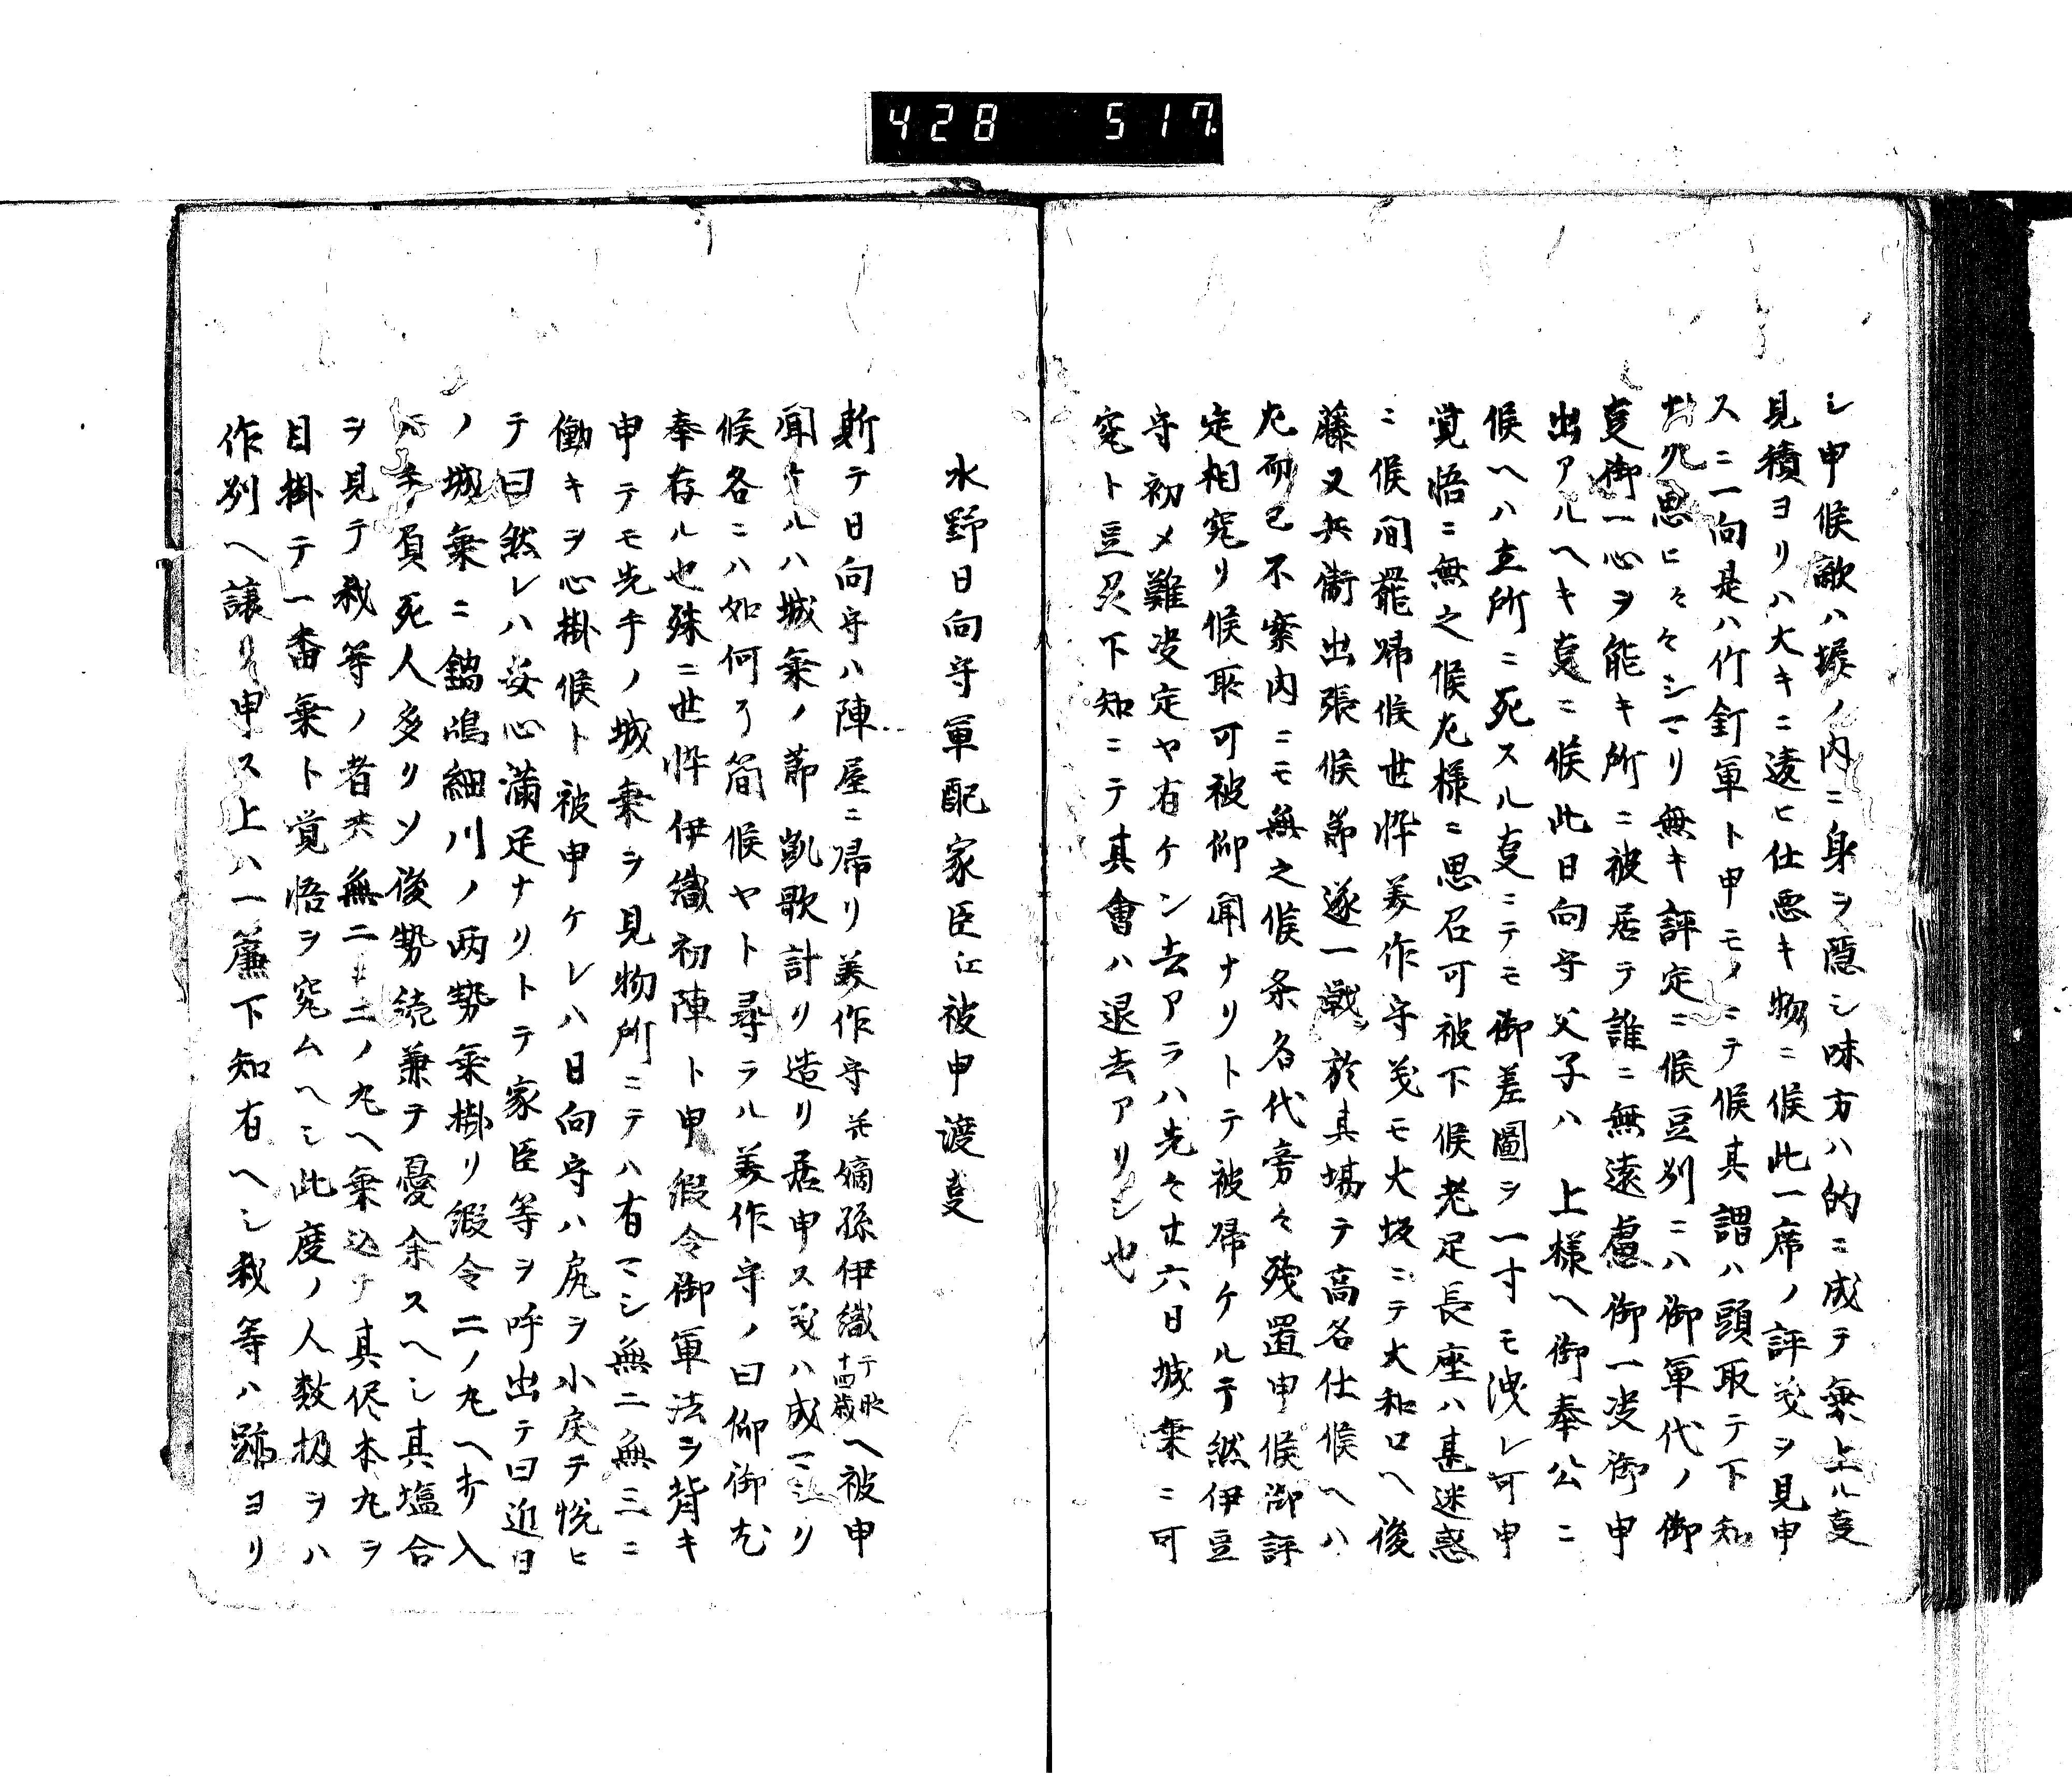 428 517
シ申候敵ハ塀ノ内ニ身ヲ隠シ味方ハ的ニ成テ乗上ル夏
見積ヨリハ大キニ違ヒ仕悪キ物ニ候此一席ノ評義ヲ見申
スニ一向是ハ竹釘軍ト申モノニテ候其謂ハ頭取テ下知
思ヒ々々シマリ無キ評定ニ候豆刕ニハ御軍代ノ御
夏御一心ヲ能キ所ニ被居テ誰ニ無遠慮御一決御申
出アルヘキ夏ニ候此日向守父子ハ 上様ヘ御奉公ニ
候ヘハ立所ニ死スル夏ニテモ御差圖ヲ一寸モ洩レ可申
覚悟ニ無之候左様ニ思召可被下候老足長座ハ甚迷惑
ニ候間罷帰候世忰美作守義モ大坂ニテ大和口ヘ後
藤又兵衛出張候節遂一戦於其場テ高名仕候ヘハ
左而已不案内ニモ無之候条名代旁々残置申候御評
定相究リ候ハ可被仰聞ナリトテ被帰ケルテ然伊豆
守初メ難決定ヤ有ケン去アラハ先々廿六日城乗ニ可
究ト豆刕下知ニテ其會ハ退去アリシ也
水野日向守軍配家臣江被申渡夏
斯テ日向守ハ陣屋ニ帰リ美作守并嫡孫伊織 于時十四歳 ヘ被申
聞ケルハ城乗ノ節凱歌計リ造リ居申ス義ハ成マシリ
候各ニハ如何了簡候ヤト尋ラル美作守ノ曰仰御尤
奉存ル也殊ニ世忰伊織初陣ト申縦令御軍法ヲ背キ
申テモ先手ノ城乗ヲ見物所ニテハ有マシ無二無三ニ
働キヲ心掛候ト被申ケレハ日向守ハ尻ヲ小戻テ悦ヒ
テ曰然レハ安心満足ナリトテ家臣等ヲ呼出テ曰近日
ノ城乗ニ鍋嶋細川ノ両勢乗掛リ縦令二ノ丸ヘ打入
手負死人多リソ後勢続兼テ憂余スヘシ其塩合
ヲ見テ我等ノ者共無二ニ二ノ丸ヘ乗込テ其侭本丸ヲ
目掛テ一番乗ト覚悟ヲ究ムヘシ此度ノ人数扱ヲハ
作刕ヘ譲リ申ス上ハ一簾下知有ヘシ我等ハ跡ヨリ